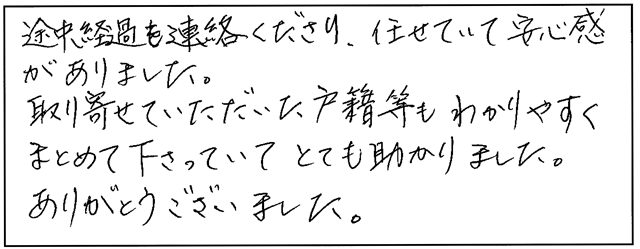 途中経過も連絡くださり、任せていて安心感
がありました。
取り寄せていただいた戸籍等もわかりやすく
まとめて下さっていてとても助かりました。
ありがとうございました。